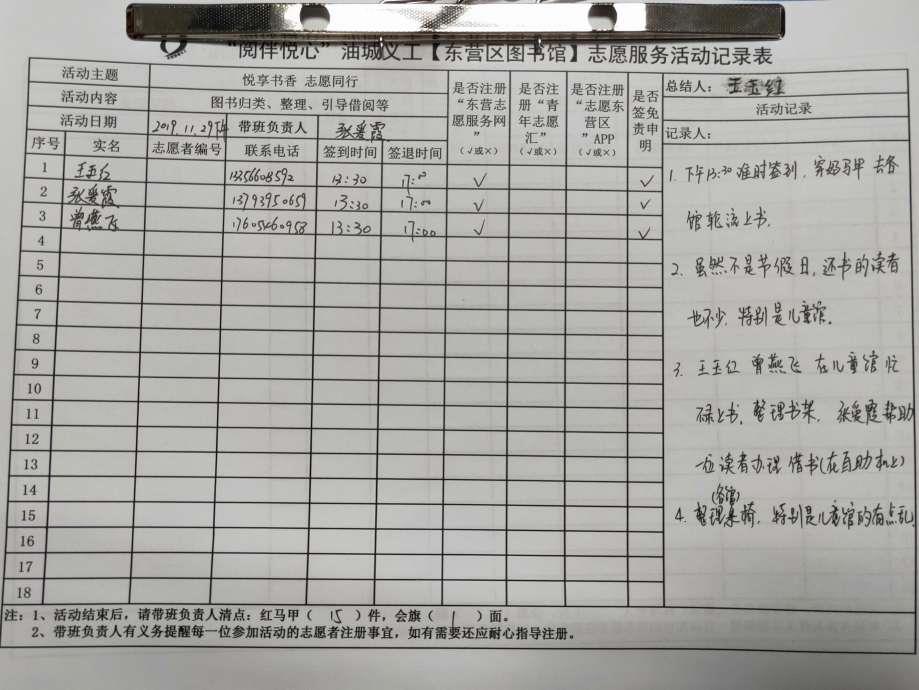 “阅伴悦心”油城义工【东营区图书馆】志愿服务活动记录表
活动主题 悦享书香 志愿同行
活动内容 图书归类、整理、引导借阅等
活动日期 2019.11.29下午 带班负责人 张爱霞
是否注册“东营志愿服务网” （√或×）
是否注册“青年志愿汇” （√或×）
是否注册“志愿东营区”APP （√或×）
是否签免责申明
总结人：王玉红
活动记录
记录人：
序号 实名 志愿者编号 联系电话 签到时间 签退时间
1 王玉红 1356608592 13:30 17:00 √ √
2 张爱霞 13793950659 13:30 17:00 √ √
3 曾燕飞 17605460958 13:30 17:00 √ √
4
5
6
7
8
9
10
11
12
13
14
15
16
17
18
1. 下午13:30准时签到，穿好马甲 去各
馆轮流上书.
2. 虽然不是节假日，还书的读者
也不少，特别是儿童馆.
3. 王玉红 曾燕飞 在儿童馆忙
碌上书，整理书架，张爱霞帮助
一位读者办理 借书(在自助机上)
(各馆)
4. 整理桌椅，特别是儿童馆的有点乱.
注：1、活动结束后，请带班负责人清点：红马甲（ 15 ）件，会旗（ 1 ）面。
2、带班负责人有义务提醒每一位参加活动的志愿者注册事宜，如有需要还应耐心指导注册。